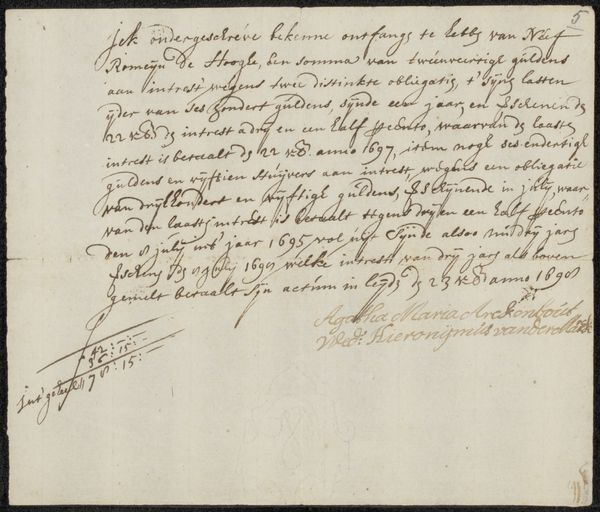 5
Jck ondergeschreve bekenne ontfange te hebbe van Neef
Romeyn De Hooghe, een somma van tweenveertigh guldens
aan intrest wegens twee distinkte obligatis, t'syne lasten
yder van ses hondert guldens, synde een jaar, en Eschenen de
22 de intrest a dry en een half Procento, waarvan de laaste
intrest is betaalt de 22 anno 1697, item nogh ses endertigh
guldens en vyfftien stuyvers aan intrest, wegens een obligatie
van dryhondert en vyftigh guldens, Eschynende in july, waar
van den laaste intrest is betaalt tegens dry en een half Procento
den 8 july int jaar 1695 vol uyt synde alsoo nu dry jare
Eschene de 8 july 1698 welke intrest van dry jare als boven
gemelt betaalt syn actum in leyde de 23 anno 1698
Agatha Maria Arckenbout
Wed: Hieronymus van der
42:—:—
36:15:—
78:15: